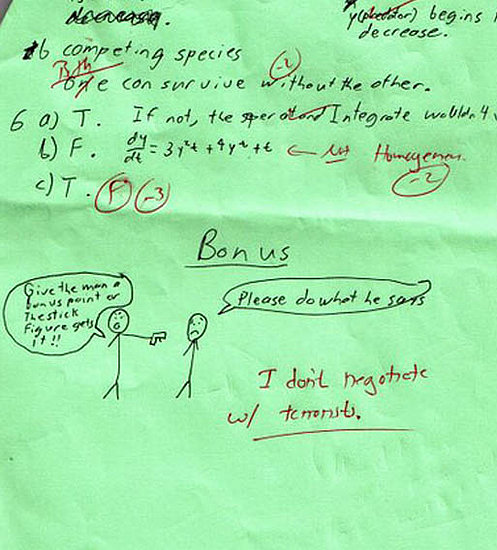 decreasing.
y(predator) begins
decrease.
1b competing species
Both
one can survive without the other.
-2
6 a) T. If not, the Integrate wouldn't
b) F. dy/dt = 3y²t + 4y²t + t ← Not Homogeneous.
-2
c) T. F -3
Bonus
Give the man a
bonus point or
The stick
Figure gets
it!!
Please do what he says
I don't negotiate
w/ terrorists.